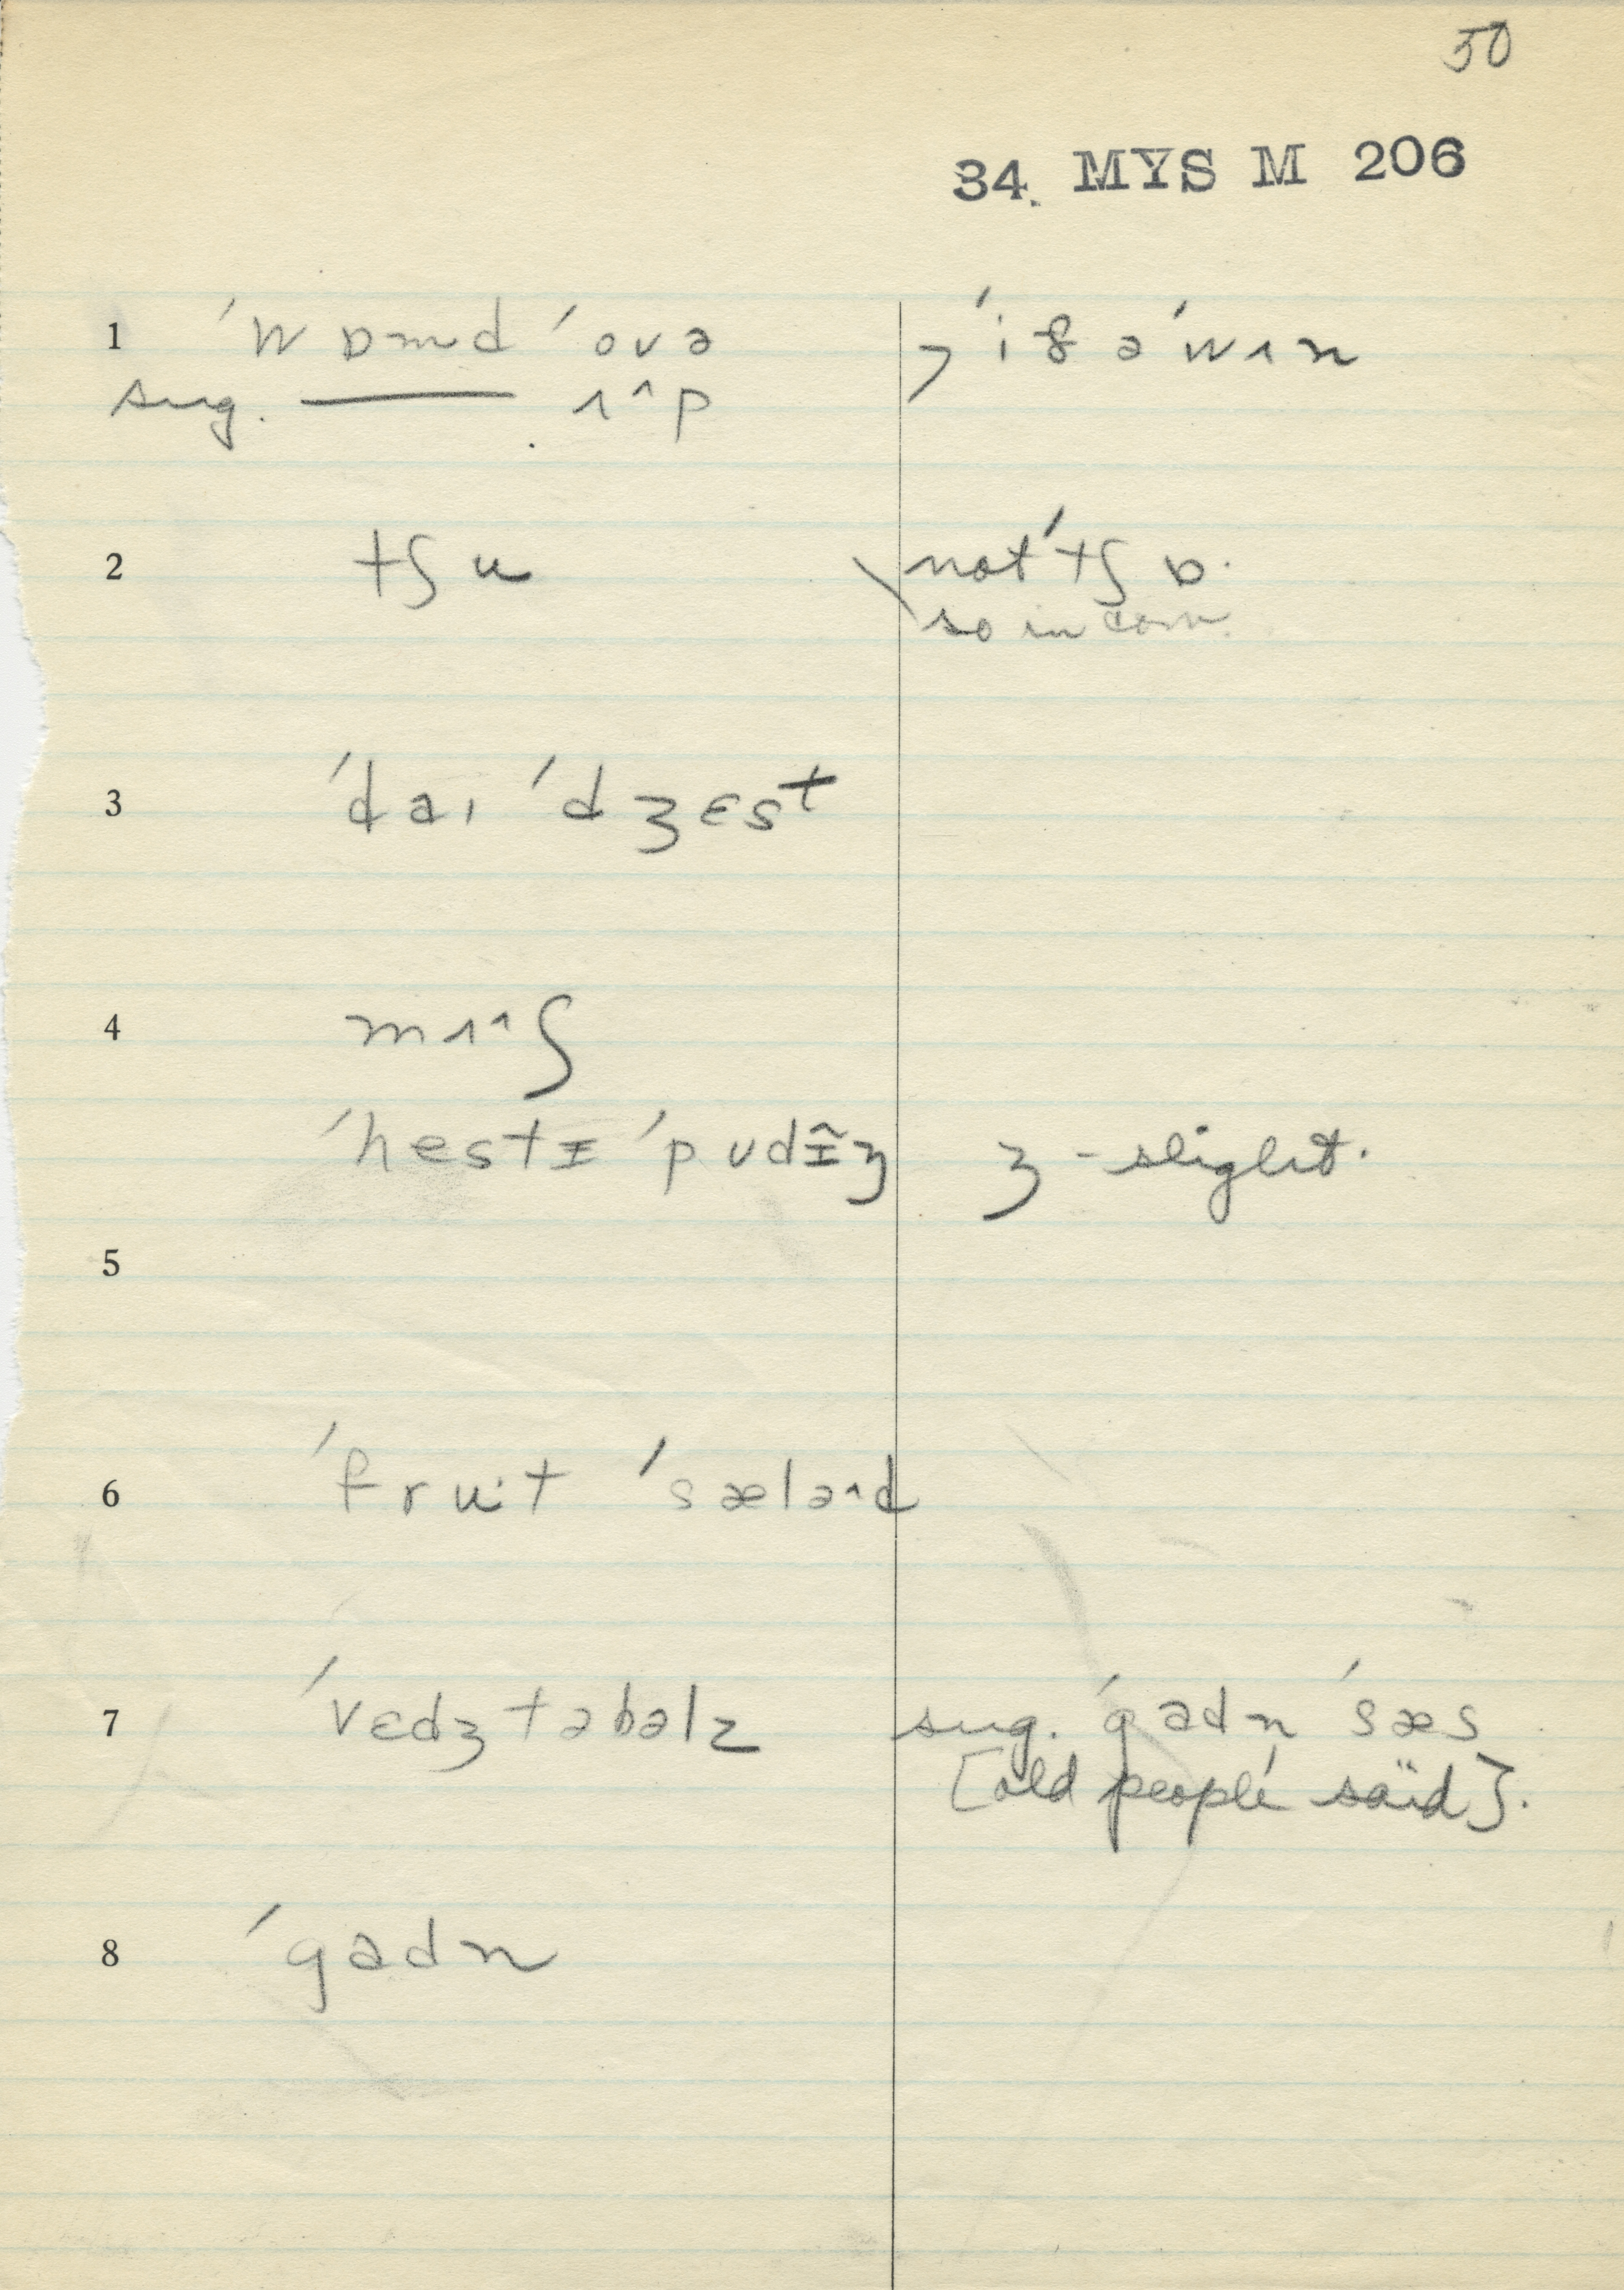 50
34. MYS M 206
1 ˈwɒmd ˈovə , ˈif ə ˈwɪn
sug. —— ʌ^p
2 tʃu \not ˈtʃɒ.
so in com.
3 ˈdaɪ ˈdʒɛst
4 mʌ^ʃ
ˈhestɪ ˈpʊdɪ̃ʒ ʒ - slight.
5
6 ˈfruˑt ˈsæləˆd
7 ˈvɛdʒtəbəlz sug. ˈgadn ˈsæs
[old people said].
8 ˈgadn